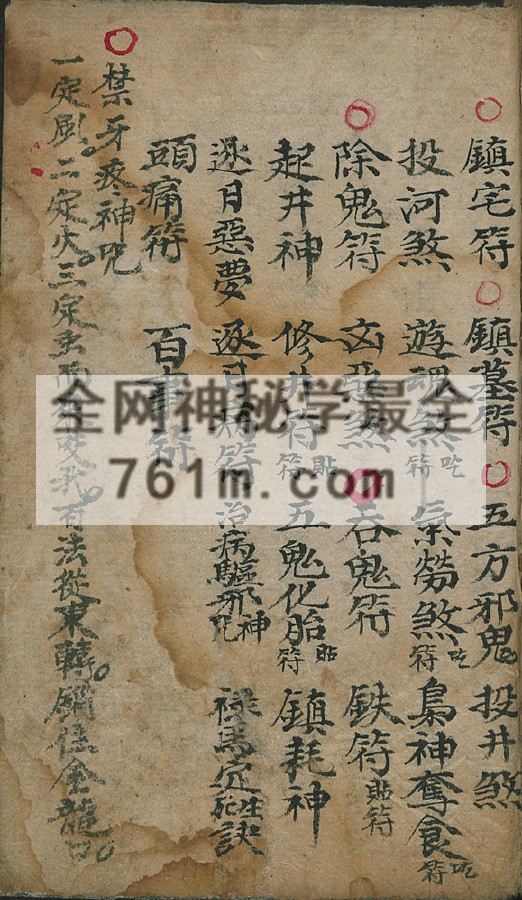 鎮宅符 鎮墓符 五方邪鬼 投井煞
投河煞 遊魂煞符吃 氣勞煞符吃 梟神奪食符吃
除鬼符 凶惡煞 吞鬼符 鉄符貼符
起井神 修井符符貼 五鬼化胎符貼 鎮耗神
逐月惡夢 逐日病符 治病驅邪神咒 祿馬定生死訣
頭痛符 百事符
禁牙疼神咒
一定風二定火三定虫 我有法從東轉 鎖住金龍口
全网神秘学最全
761m.com